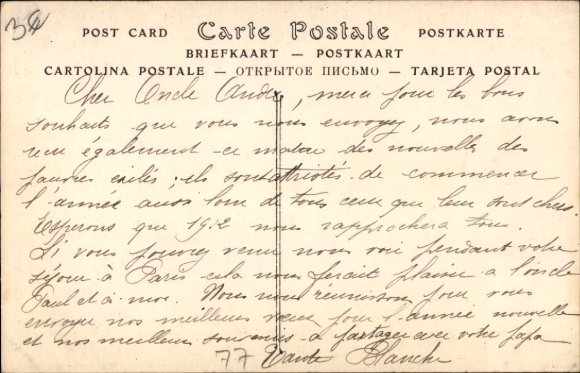 34
POST CARD Carte Postale POSTKARTE
BRIEFKAART — POSTKAART
CARTOLINA POSTALE — ОТКРЫТОЕ ПИСЬМО — TARJETA POSTAL
Cher Oncle André, merci pour les bons
souhaits que vous nous envoyez, nous avons
reçu également ce matin des nouvelles des
pauvres exilés ; ils sont attristés de commencer
l'année aussi loin de tous ceux que leur sont chers.
Esperons que 1912 nous rapprochera tous.
Si vous pouvez venir nous voir pendant votre
séjour à Paris cela nous ferait plaisir a l'oncle
Paul et à moi. Nous nous réunissons pour vous
envoyer nos meilleurs vœux pour l'année nouvelle
et nos meilleurs souvenirs a partager avec votre papa
77 Tante Blanche